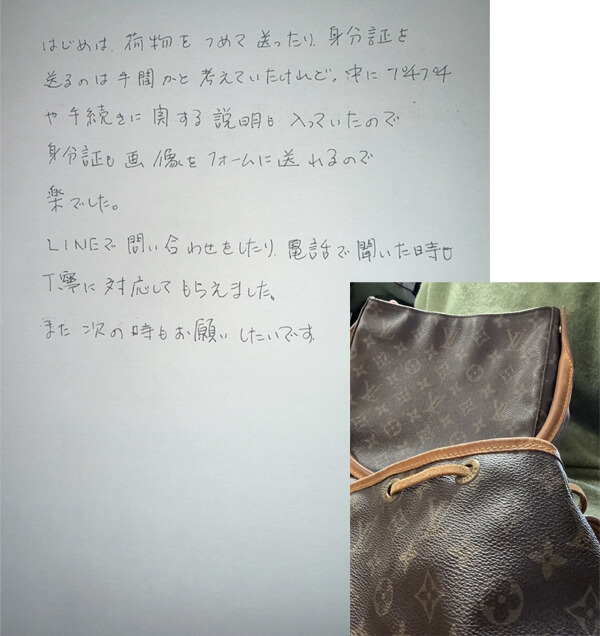 はじめは、荷物をつめて送ったり、身分証を
送るのは手間かと考えていたけれど、中にプチプチ
や手続きに関する説明も入っていたので
身分証も画像をフォームに送れるので
楽でした。
LINEで問い合わせをしたり、電話で聞いた時も
丁寧に対応してもらえました。
また次の時もお願いしたいです。